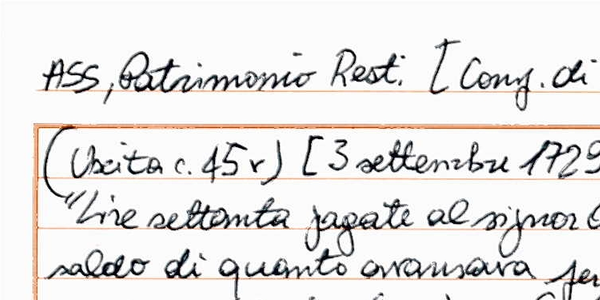 ASS, Patrimonio Resti. [Cong. di
(Uscita c. 45r) [3 settembre 1729
"Lire settanta pagate al signor
saldo di quanto avansava per